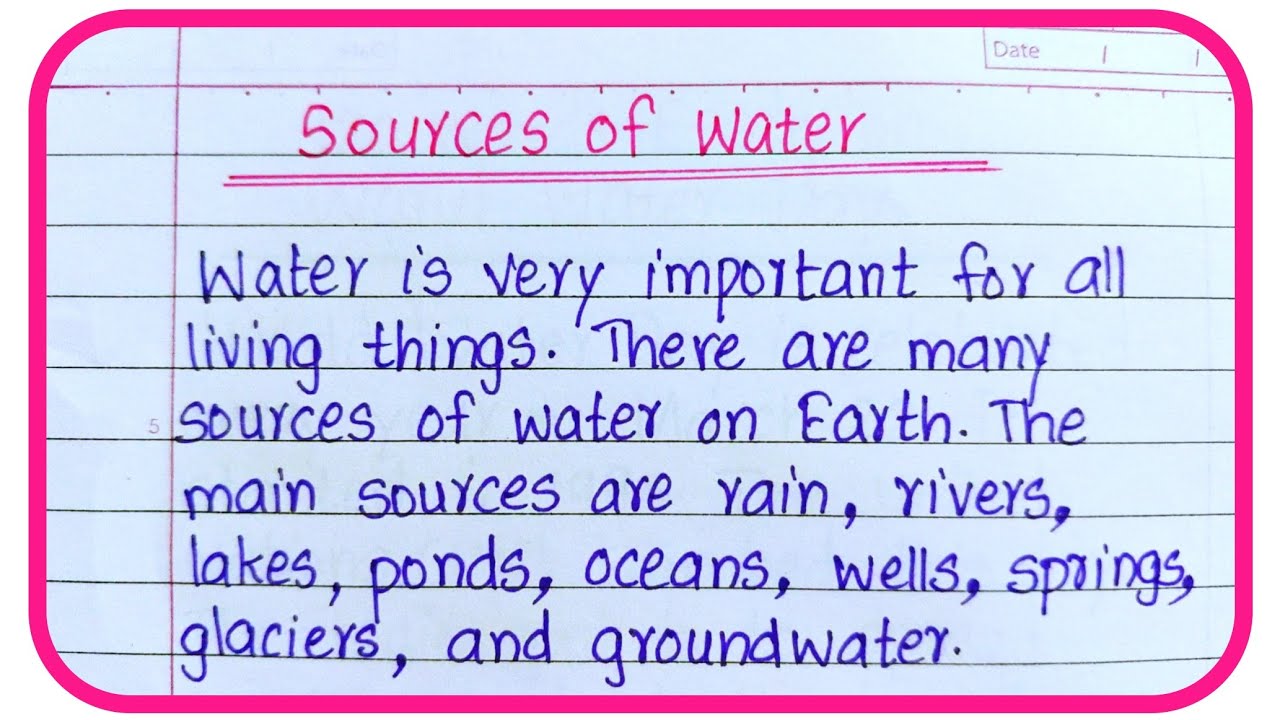 Date
Sources of Water
Water is very important for all
living things. There are many
5 sources of water on Earth. The
main sources are rain, rivers,
lakes, ponds, oceans, wells, springs,
glaciers, and groundwater.